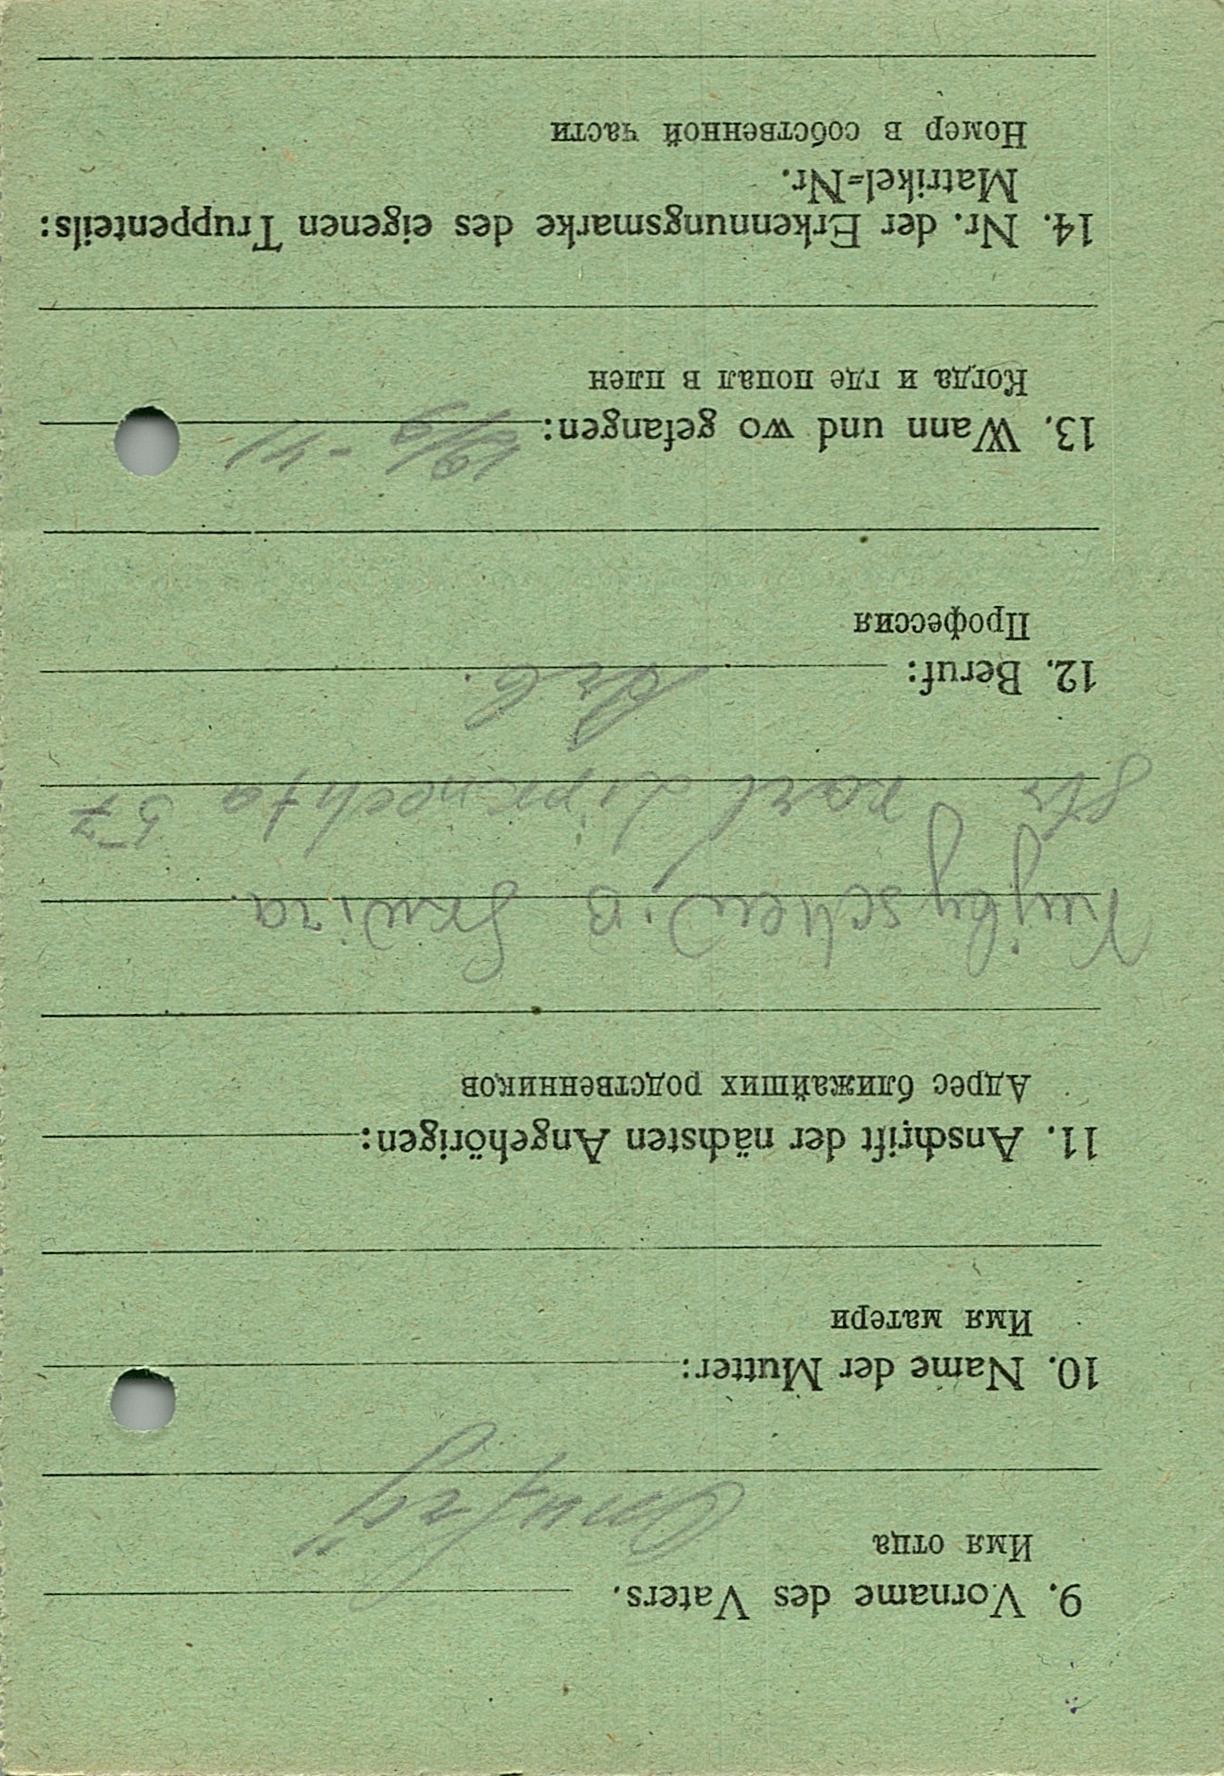 9. Vorname des Vaters.
Имя отца
10. Name der Mutter:
Имя матери
11. Anschrift der nächsten Angehörigen:
Адрес ближайших родственников
Kujbyschew
Str karl Lipknechta 57
12. Beruf: Arb.
Профессия
13. Wann und wo gefangen: 19/9 - 41
Когда и где попал в плен
14. Nr. der Erkennungsmarke des eigenen Truppenteils:
Matrikel=Nr.
Номер в собственной части